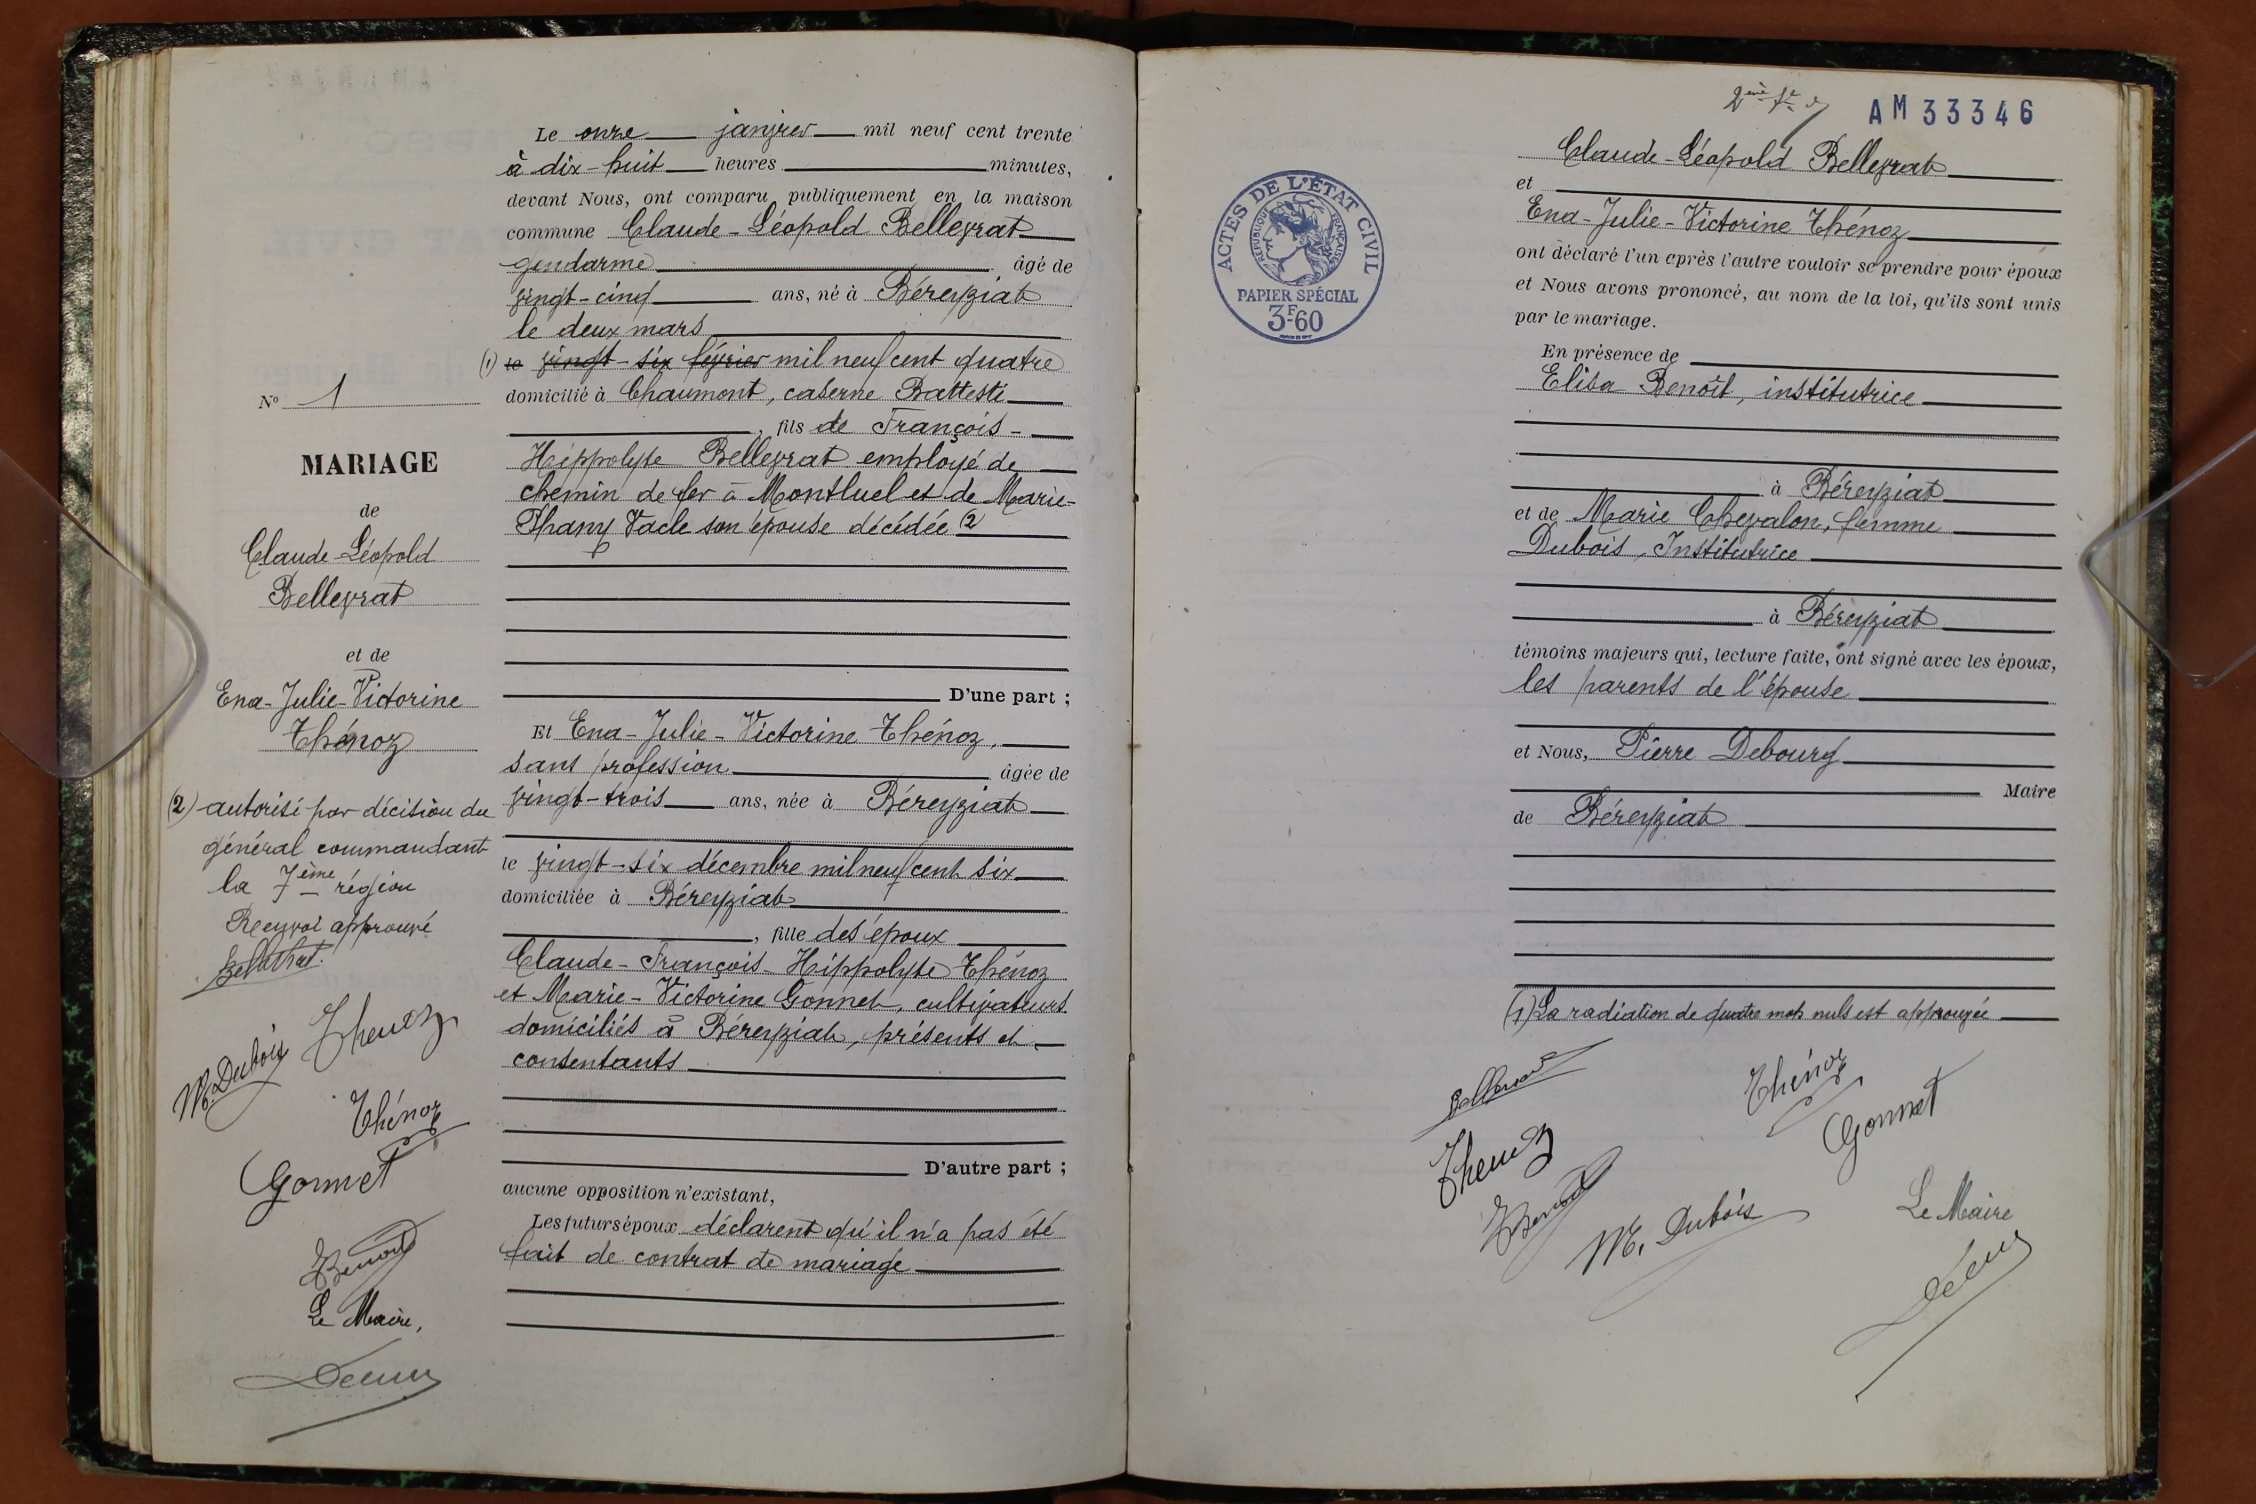 Le onze janvier mil neuf cent trente
à dix-huit heures minutes,
devant Nous, ont comparu publiquement en la maison
commune Claude-Léopold Belleyrat
gendarme âgé de
vingt-cinq ans, né à Béreyziat
le deux mars
(1) le vingt-six février mil neuf cent quatre
domicilié à Chaumont, caserne Battesti
, fils de François-
Hippolyte Belleyrat employé de
chemin de fer à Montluel et de Marie-
Phany Vacle son épouse décédée (2)
D'une part ;
Et Ena-Julie-Victorine Thénoz,
sans profession âgée de
vingt-trois ans, née à Béreyziat
le vingt-six décembre mil neuf cent six
domiciliée à Béreyziat
, fille des époux
Claude-François-Hippolyte Thénoz
et Marie-Victorine Gonnet, cultivateurs
domiciliés à Béreyziat, présents et
consentants
D'autre part ;
aucune opposition n'existant,
Les futurs époux déclarent qu'il n'a pas été
fait de contrat de mariage
No 1
MARIAGE
de
Claude-Léopold
Belleyrat
et de
Ena-Julie-Victorine
Thénoz
(2) autorisé par décision du
général commandant
la 7ème région
Renvoi approuvé
M. Dubois
Thenoz
Thénoz
Gonnet
Benoit
Le Maire,
2ème
AM 33346
ACTES DE L'ÉTAT CIVIL
RÉPUBLIQUE FRANÇAISE
PAPIER SPÉCIAL
3F60
Claude-Léopold Belleyrat
et
Ena-Julie-Victorine Thénoz
ont déclaré l'un après l'autre vouloir se prendre pour époux
et Nous avons prononcé, au nom de la loi, qu'ils sont unis
par le mariage.
En présence de
Elisa Benoît, institutrice
à Béreyziat
et de Marie Chevalon, femme
Dubois, Institutrice
à Béreyziat
témoins majeurs qui, lecture faite, ont signé avec les époux,
les parents de l'épouse
et Nous, Pierre Debourg
Maire
de Béreyziat
(1) La radiation de quatre mots nuls est approuvée
Thénoz
Thenoz
Gonnet
Benoit
M. Dubois
Le Maire